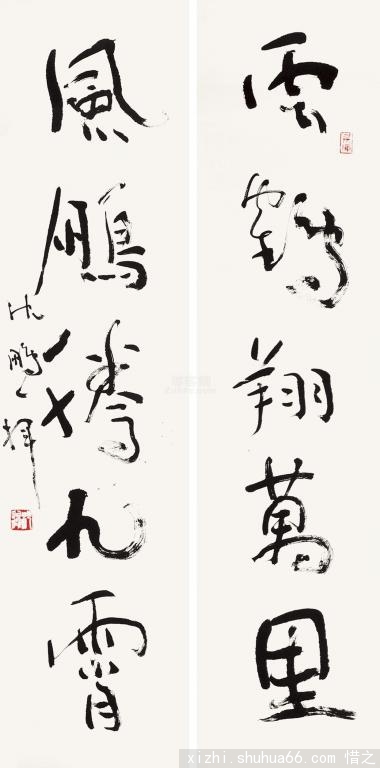 雲鶴翔萬里
風鵬搏九霄
沈鵬揮
xizhi.shuhua66.com @ 惜之